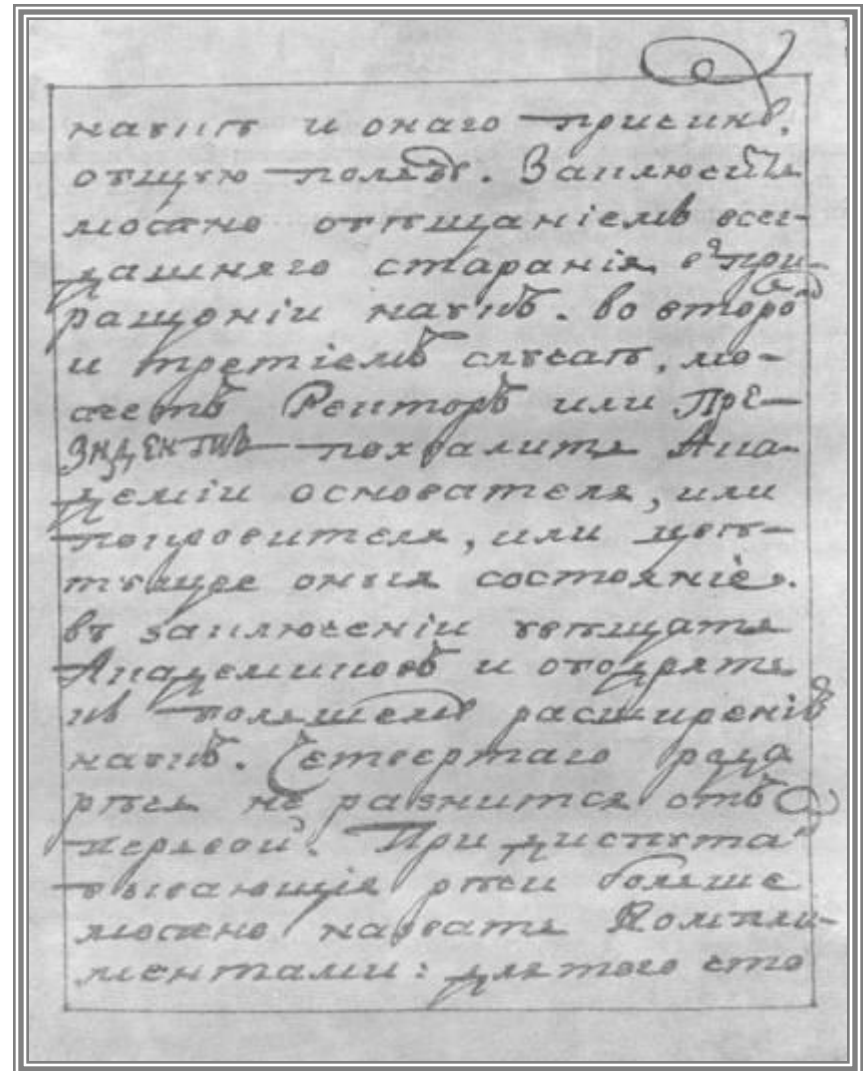 наукѣ и онаго причинꙋ,
общую пользу. Заключить
можно обѣщаніемъ всег-
дашняго старанія в при-
ращеніи наукъ. Во второ
и третіемъ случаѣ, мо-
жетъ Ректоръ или Пре-
зидентъ похвалить Ака-
деміи основателя, или
покровителя, или цвѣ-
тущее оныя состояніе.
въ заключеніи увѣщать
Академиковъ и ободрять
къ большемꙋ расширенію
наукъ. Четвертаго рода
рѣчь не разнится отъ
первой. При диспута
бывающія рѣчи больше
можно назвать Компли-
ментами: для того что